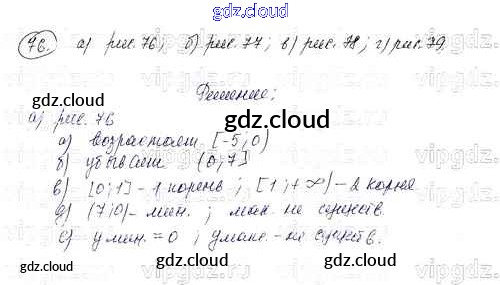 gdz.cloud
76. а) рис. 76; б) рис. 77; в) рис. 78; г) рис. 79.
Решение:
gdz.cloud gdz.cloud
а) рис. 76
а) возрастает [-5; 0)
б) убывает (0; 7]
в) [0; 1] – 1 корень; [1; +∞) – 2 корня
gdz.cloud gdz.cloud
д) (7; 0) – мин.; мак. не существ.
е) y мин. = 0; y макс. – не существ.
gdz.cloud gdz.cloud